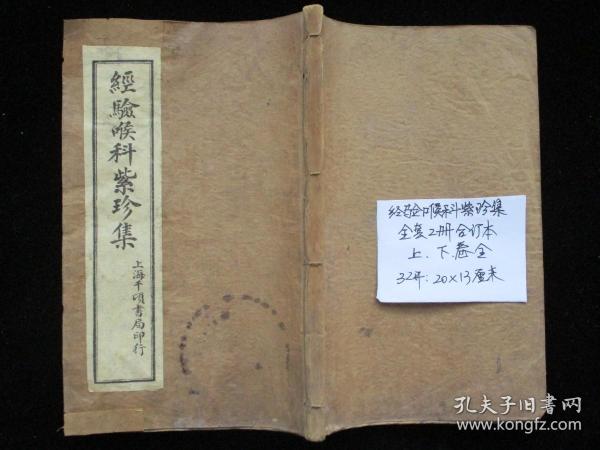 經驗喉科紫珍集
上海千頃書局印行
经验喉科紫珍集
全套2册合订本
上.下.卷全
32开:20×13厘米
孔夫子旧书网
www.kongfz.com